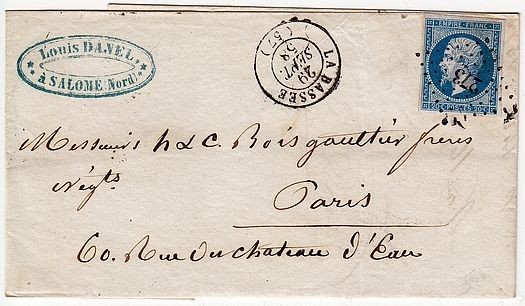 Louis DANEL
à SALOMÉ (Nord)
LA BASSÉE
29
SEPT.
58
(57)
EMPIRE FRANC.
20 C. PTES 20 C.
Messieurs h & C. Boisgaultier freres
Négts
Paris
60. Rue du chateau d'Eau